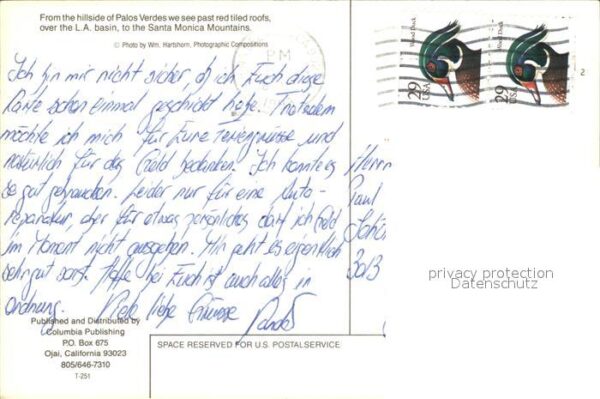 From the hillside of Palos Verdes we see past red tiled roofs,
over the L.A. basin, to the Santa Monica Mountains.
© Photo by Wm. Hartshorn, Photographic Compositions
PM
Wood Duck
29
USA
Wood Duck
29
USA
2
Ich bin mir nicht sicher, ob ich Euch diese
Karte schon einmal geschickt habe. Trotzdem
möchte ich mich für Eure und
natürlich für das Geld bedanken. Ich konnte es
so gut gebrauchen. Leider nur für eine Auto-
reparatur, aber für etwas persönliches darf ich Geld
im Moment nicht ausgeben. Mir geht es eigentlich
sehr gut sonst. Hoffe bei Euch ist auch alles in
Ordnung. Viele liebe Grüsse
Herrn
Paul
3013
privacy protection
Datenschutz
Published and Distributed by
Columbia Publishing
P.O. Box 675
Ojai, California 93023
805/646-7310
T-251
SPACE RESERVED FOR U.S. POSTALSERVICE